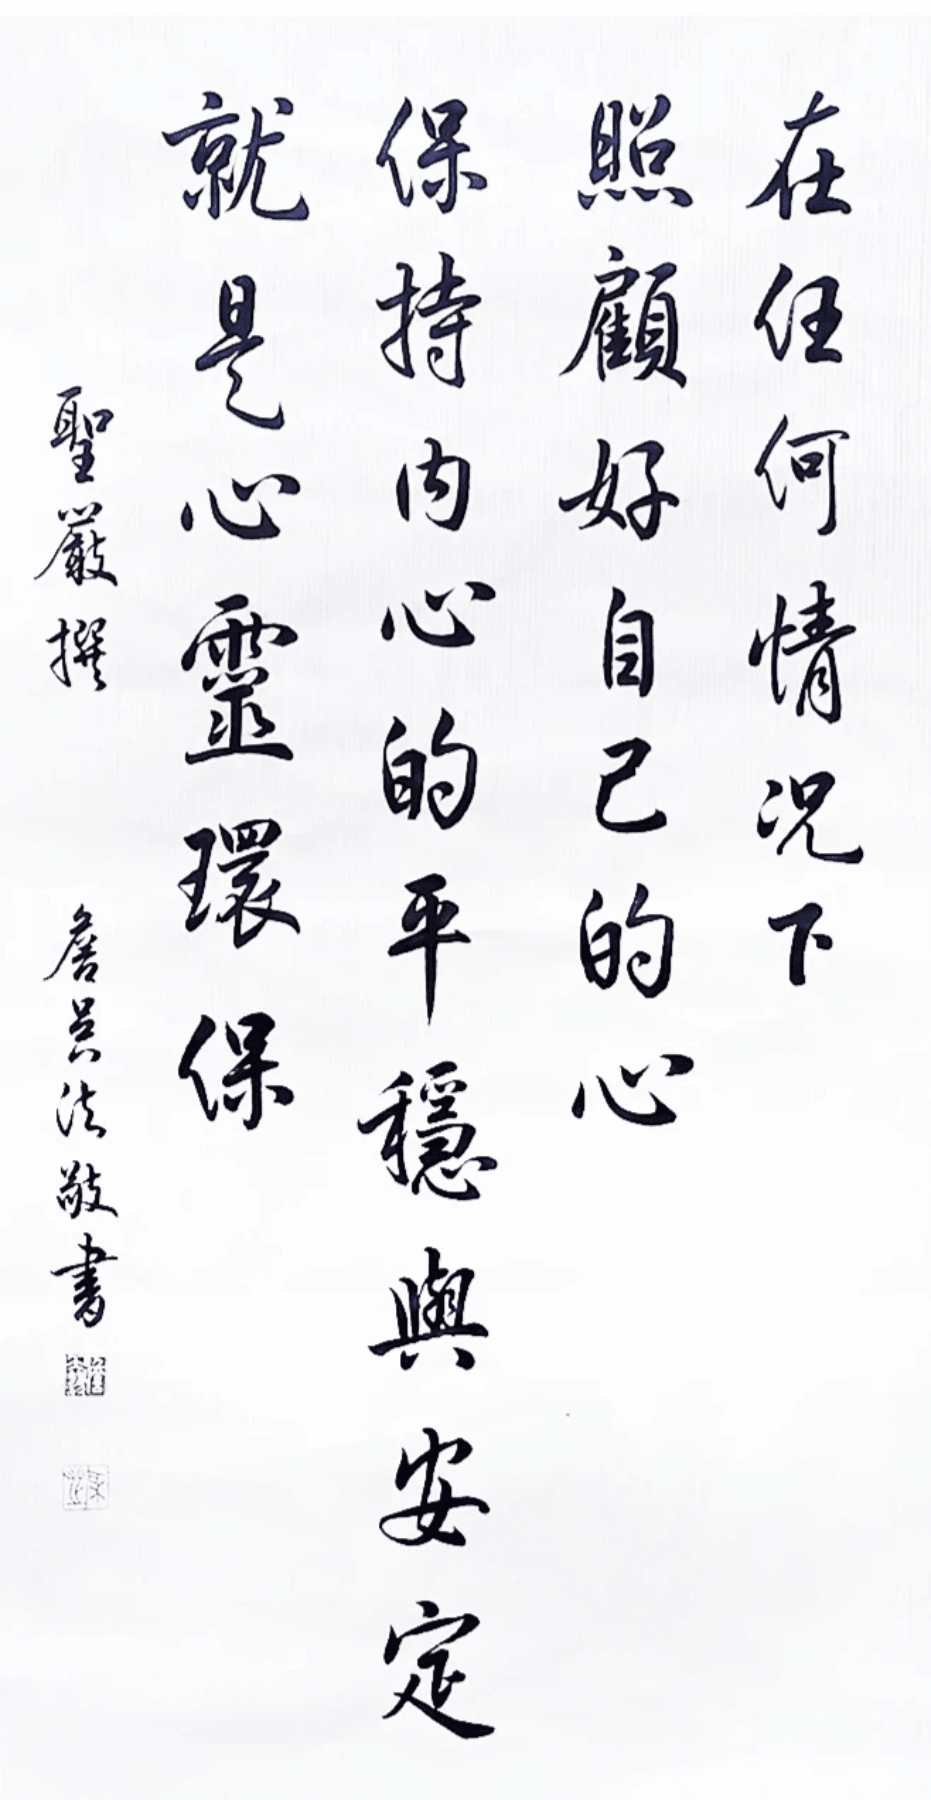 在任何情况下
照顧好自己的心
保持内心的平穩與安定
就是心靈環保
聖嚴撰
詹吳法敬書